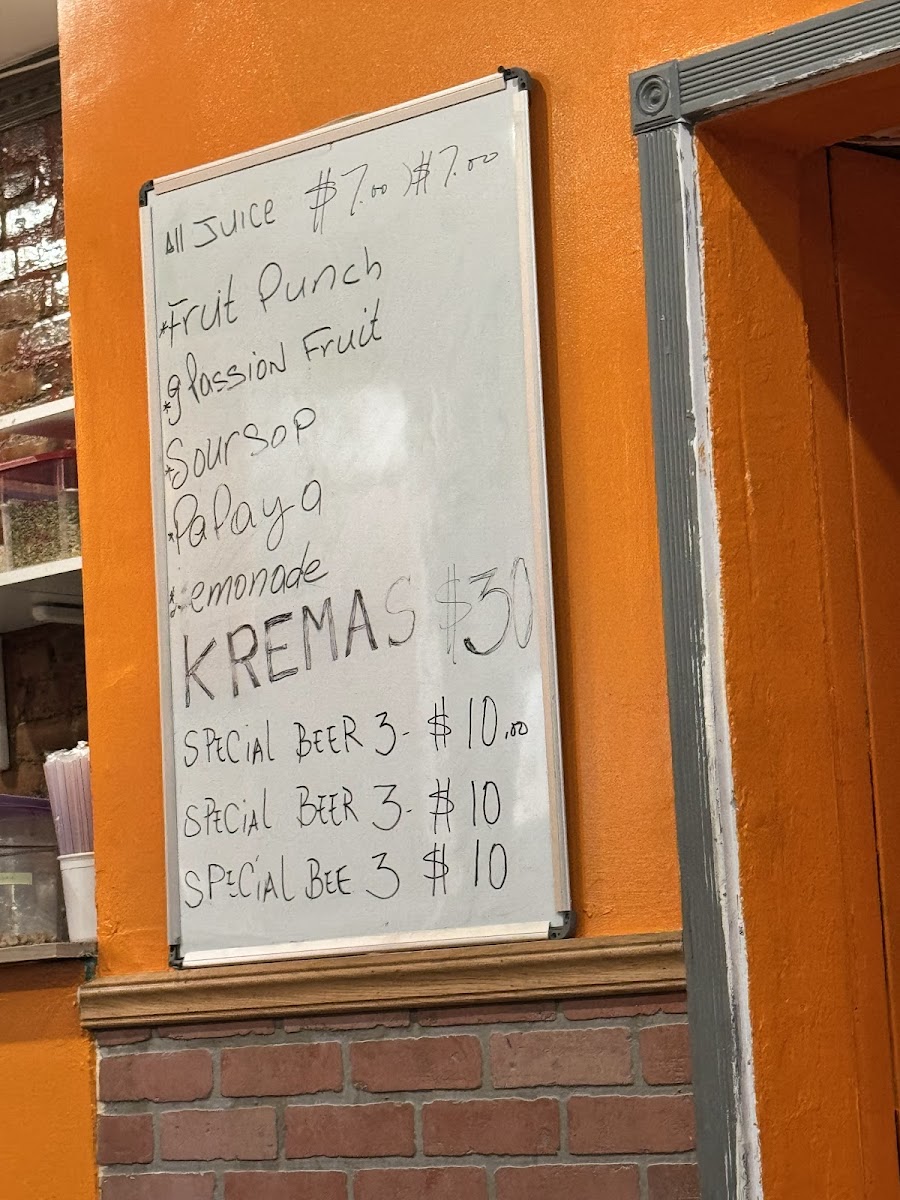 All Juice $7.00 )$7.00
*Fruit Punch
*Passion Fruit
*Soursop
*Papaya
*Lemonade
KREMAS $30
SPECIAL BEER 3- $10.00
SPECIAL BEER 3- $10
SPECIAL BEE 3 $10